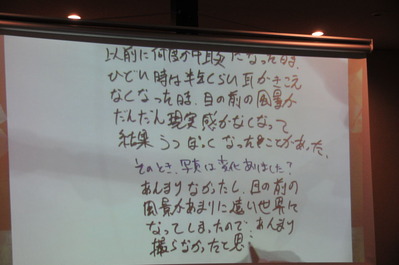 以前に何度か中耳炎になった時、
ひどい時は半年くらい耳がきこえ
なくなった時、目の前の風景が
だんだん現実感がなくなって
結果うつっぽくなったことがあった。
そのとき、写真は変化ありました?
あんまりなかったし、目の前の
風景があまりに遠い世界に
なってしまったので、あんまり
撮らなかったと思う